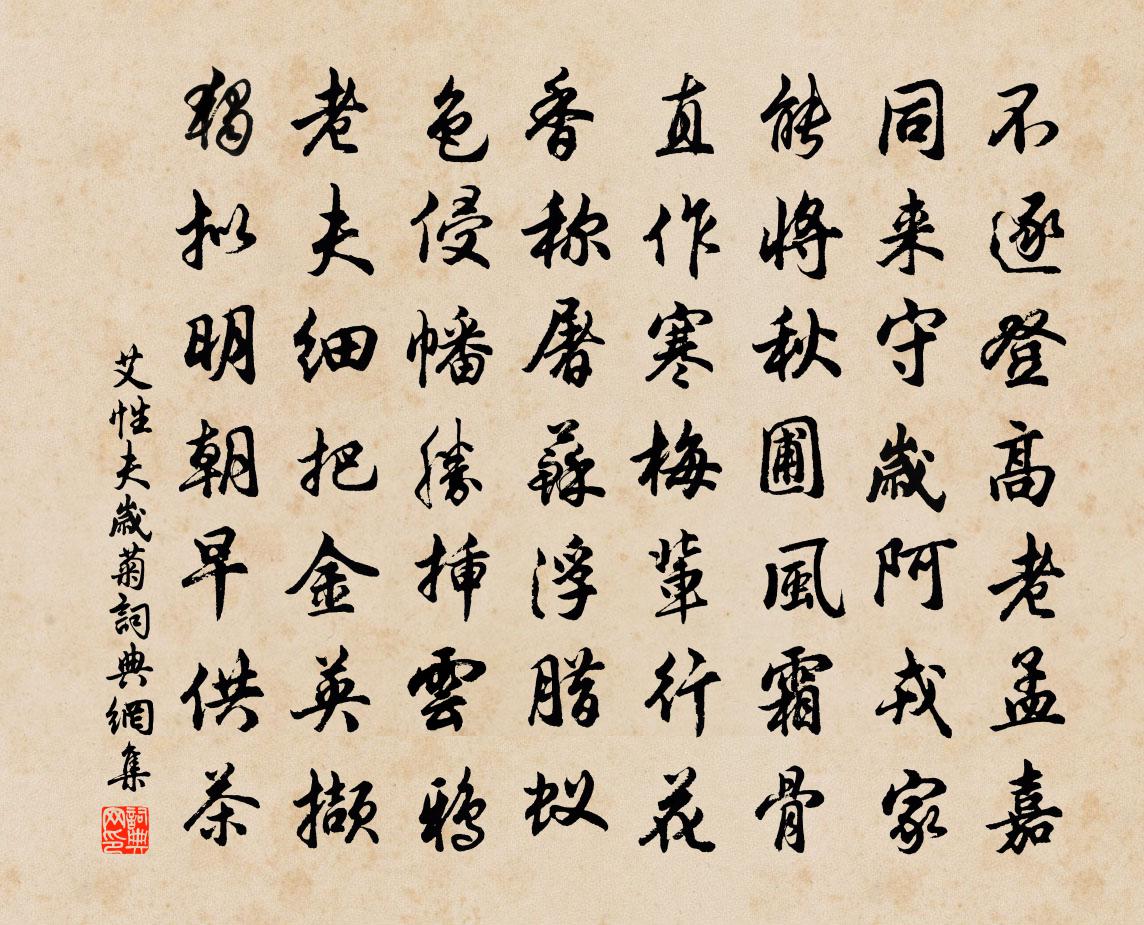 不逐登高老孟嘉
同来守歲阿戎家
能將秋圃風霜骨
直作寒梅輩行花
香称屠蘇浮腊蚁
色侵幡勝揷雲鴉
老夫细把金英擷
獨拟明朝早供茶
艾性夫歲菊詞典網集
詞典網印